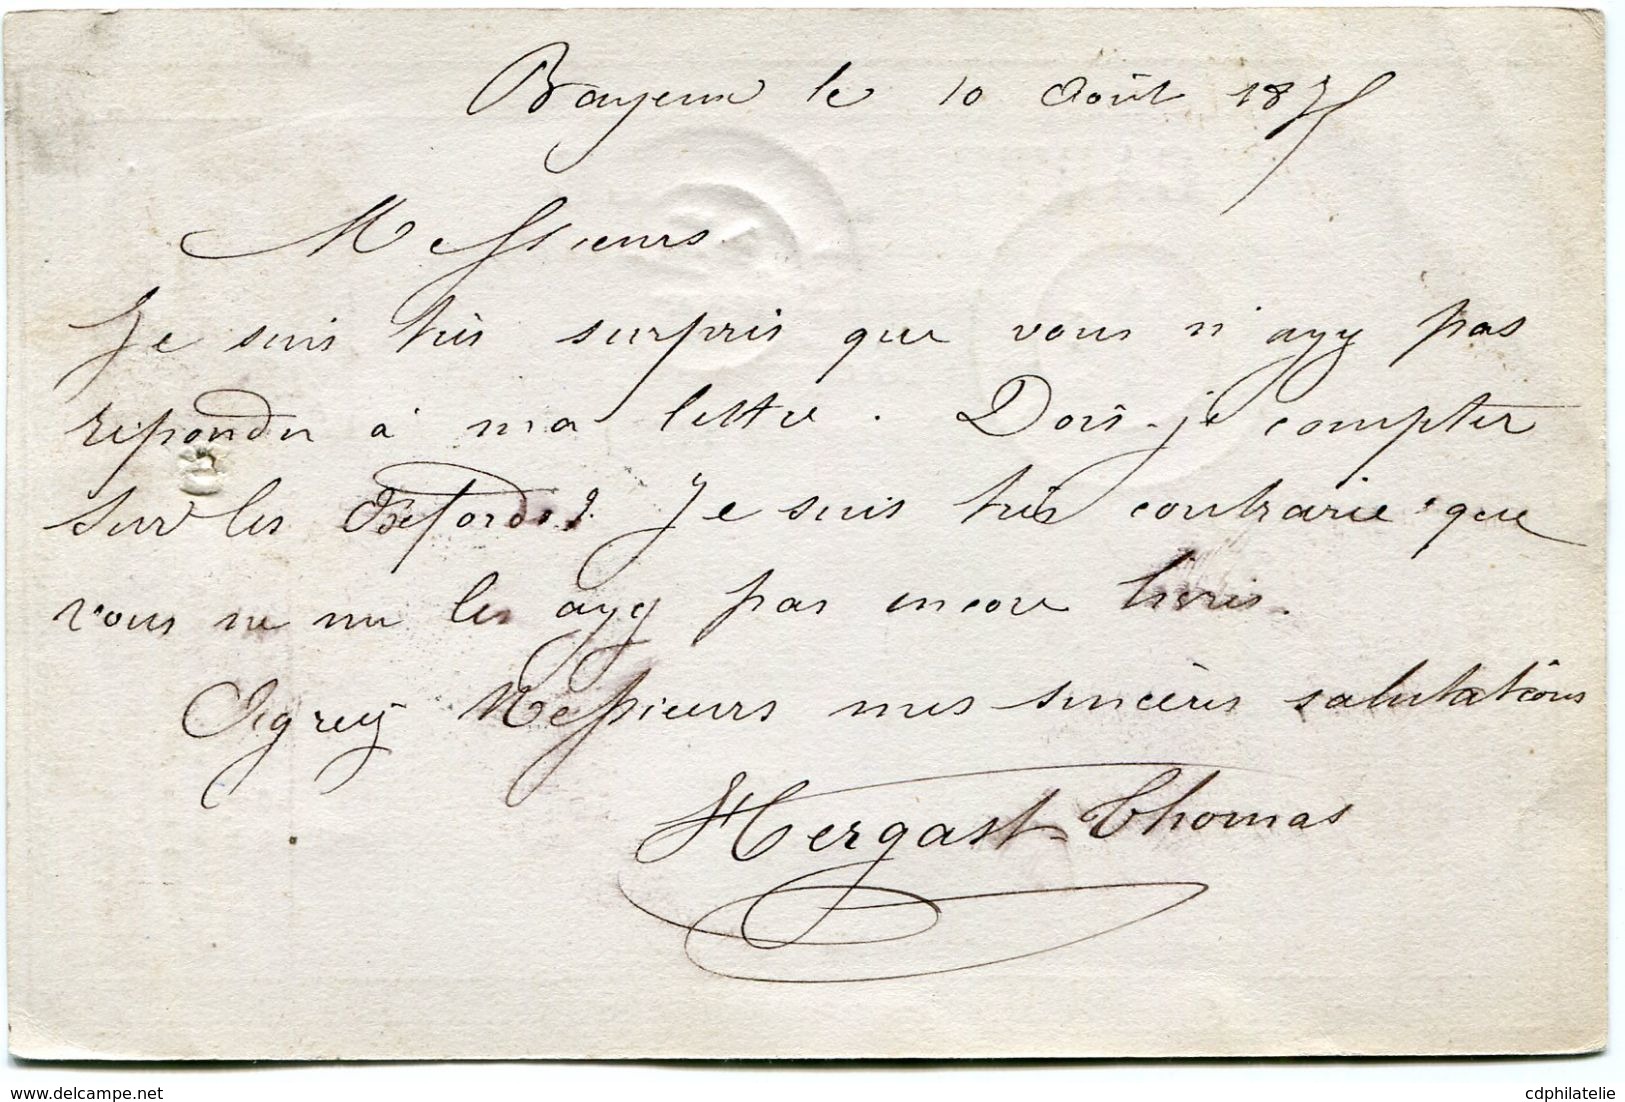 Bayeux le 10 Août 1875
Messieurs
Je suis très surpris que vous n'ayez pas
répondu à ma lettre. Dois-je compter
sur les Oxfords? Je suis très contrarié que
vous ne me les ayez pas encore livrés.
Agréez Messieurs mes sincères salutations
Hergast-Thomas
www.delcampe.net
cdphilatelie